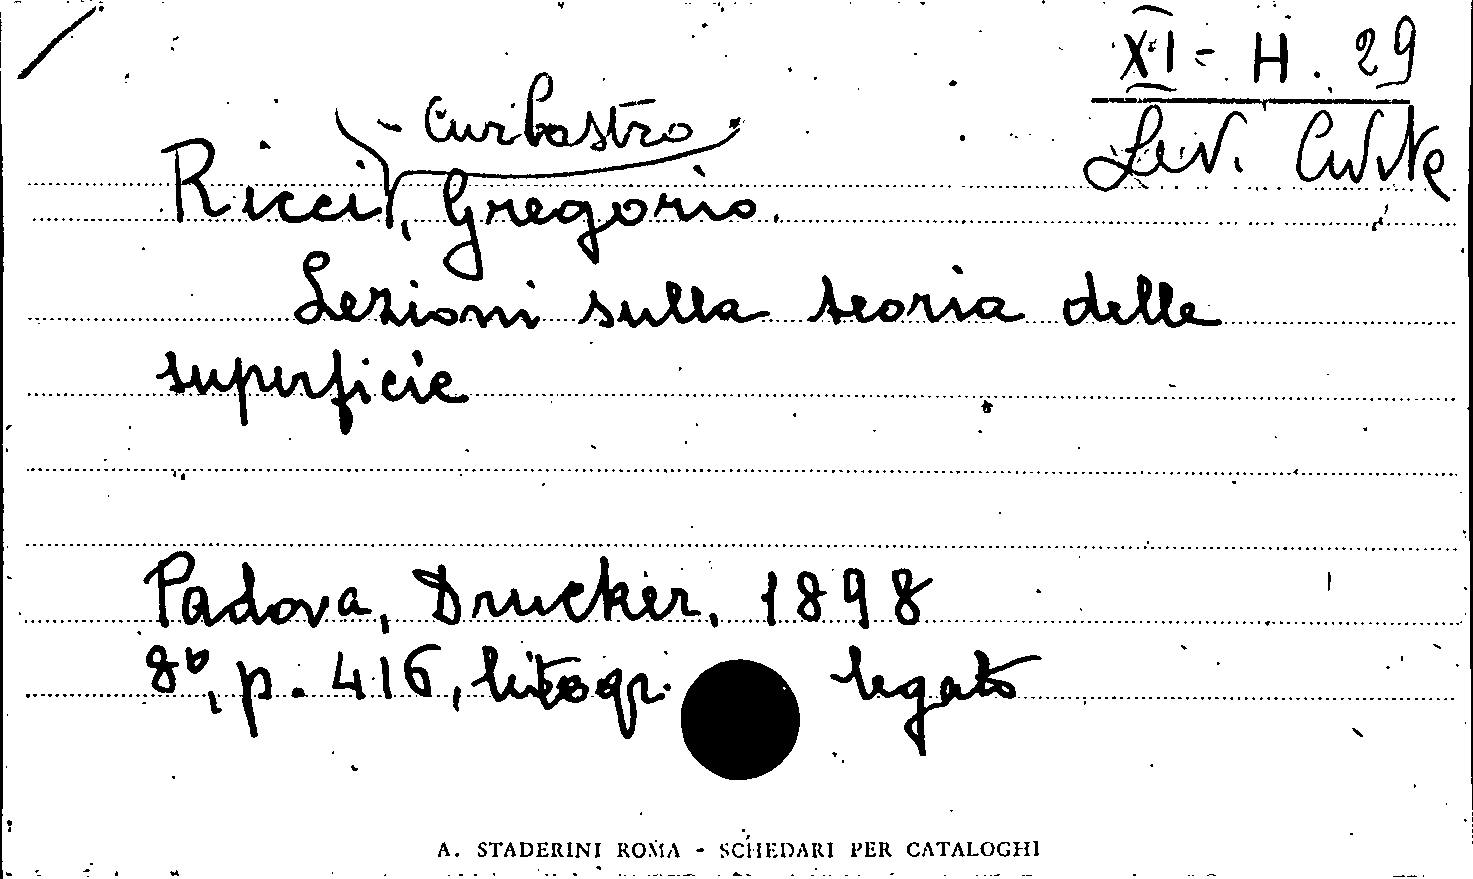 XI - H. 29
Levi Civita
Ricci-Curbastro, Gregorio.
Lezioni sulla teoria delle
superficie
Padova, Drucker, 1898
8°, p. 416, litogr. legato
A. STADERINI ROMA - SCHEDARI PER CATALOGHI